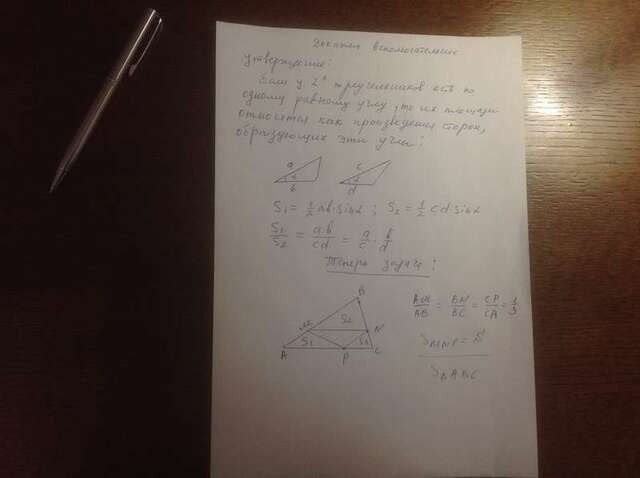 Докажем вспомогательное
утверждение:
Если у 2ˣ треугольников есть по
одному равному углу, то их площади
относятся как произведения сторон,
образующих эти углы:
a
α
b
c
α
d
S₁ = ½ ab·sinα ; S₂ = ½ cd sinα
S₁/S₂ = a·b/cd = a/c · b/d
Теперь задача:
B
M
S₂
N
A
S₁
P
S₃
C
AM/AB = BN/BC = CP/CA = 1/3
S_MNP = S
S_ΔABC